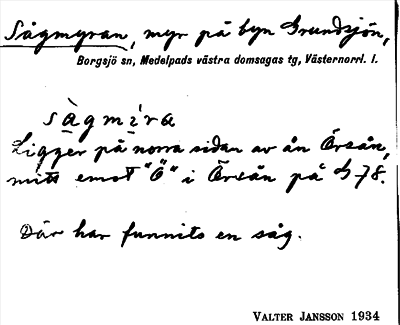 Sågmyran, myr på byn Grundsjön,
Borgsjö sn, Medelpads västra domsagas tg, Västernorrl. l.
sàgmi̱ra
Ligger på norra sidan av ån Örsån,
mitt emot "Ö" i Örsån på G78.
Där har funnits en såg.
VALTER JANSSON 1934